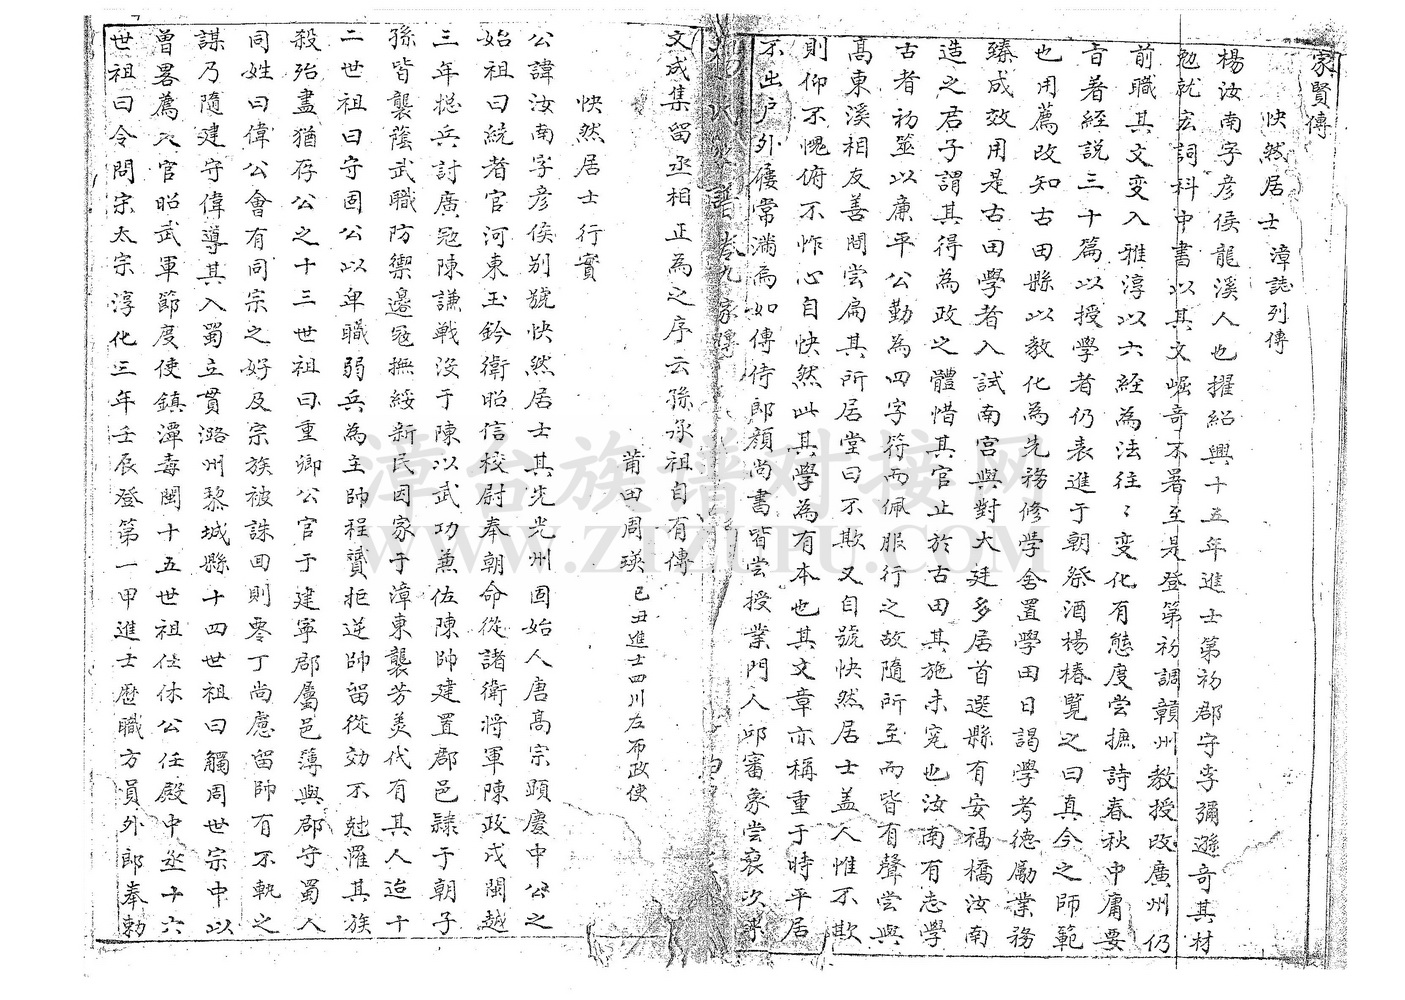 家賢傳
快然居士 漳誌列傳
楊汝南字彥侯龍溪人也擢紹興十五年進士第初郡守李彌遜奇其材
勉就宏詞科中書以其文崛奇不署至是登第初調贛州教授改廣州仍
前職其文變入雅淳以六經為法往〻變化有態度嘗摭詩春秋中庸要
旨著經說三十篇以授學者仍表進于朝祭酒楊椿覽之曰真今之師範
也用薦改知古田縣以教化為先務修學舍置學田日謁學考德勵業務
臻成效用是古田學者入試南宮與對大廷多居首選縣有安福橋汝南
造之君子謂其得為政之體惜其官止於古田其施未究也汝南有志學
古者初筮以廉平公勤為四字符而佩服行之故隨所至而皆有聲嘗與
高東溪相友善問嘗扁其所居堂曰不欺又自號快然居士盖人惟不欺
則仰不愧俯不怍心自快然此其學為有本也其文章亦稱重于時平居
不出戶外屨常滿焉如傳侍郎顏尚書皆嘗授業門人邱審象嘗裒次
譜卷九家傳
文成集留丞相正為之序云孫承祖自有傳
莆田周瑛 己丑進士四川左布政使
快然居士行實
公諱汝南字彥侯別號快然居士其先光州固始人唐高宗顯慶中公之
始祖曰統者官河東玉鈐衛昭信校尉奉朝命從諸衛將軍陳政戍閩越
三年摠兵討廣冦陳謙戰沒于陳以武功兼佐陳帥建置郡邑隸于朝子
孫皆襲蔭武職防禦邊冦撫綏新民因家于漳東襲芳羙代有其人迨十
二世祖曰守固公以卑職弱兵為主帥程贇拒逆帥留從効不尅懼其族
殺殆盡猶存公之十三世祖曰重卿公官于建寧郡屬邑薄與郡守蜀人
同姓曰偉公會有同宗之好及宗族被誅回則零丁尚慮留帥有不軌之
謀乃隨建守偉導其入蜀立貫潞州黎城縣十四世祖曰觸周世宗中以
曽畧薦入官昭武軍節度使鎮潭毒閫十五世祖任休公任殿中丞十六
世祖曰令問宋太宗淳化三年壬辰登第一甲進士歴職方員外郎奉勅